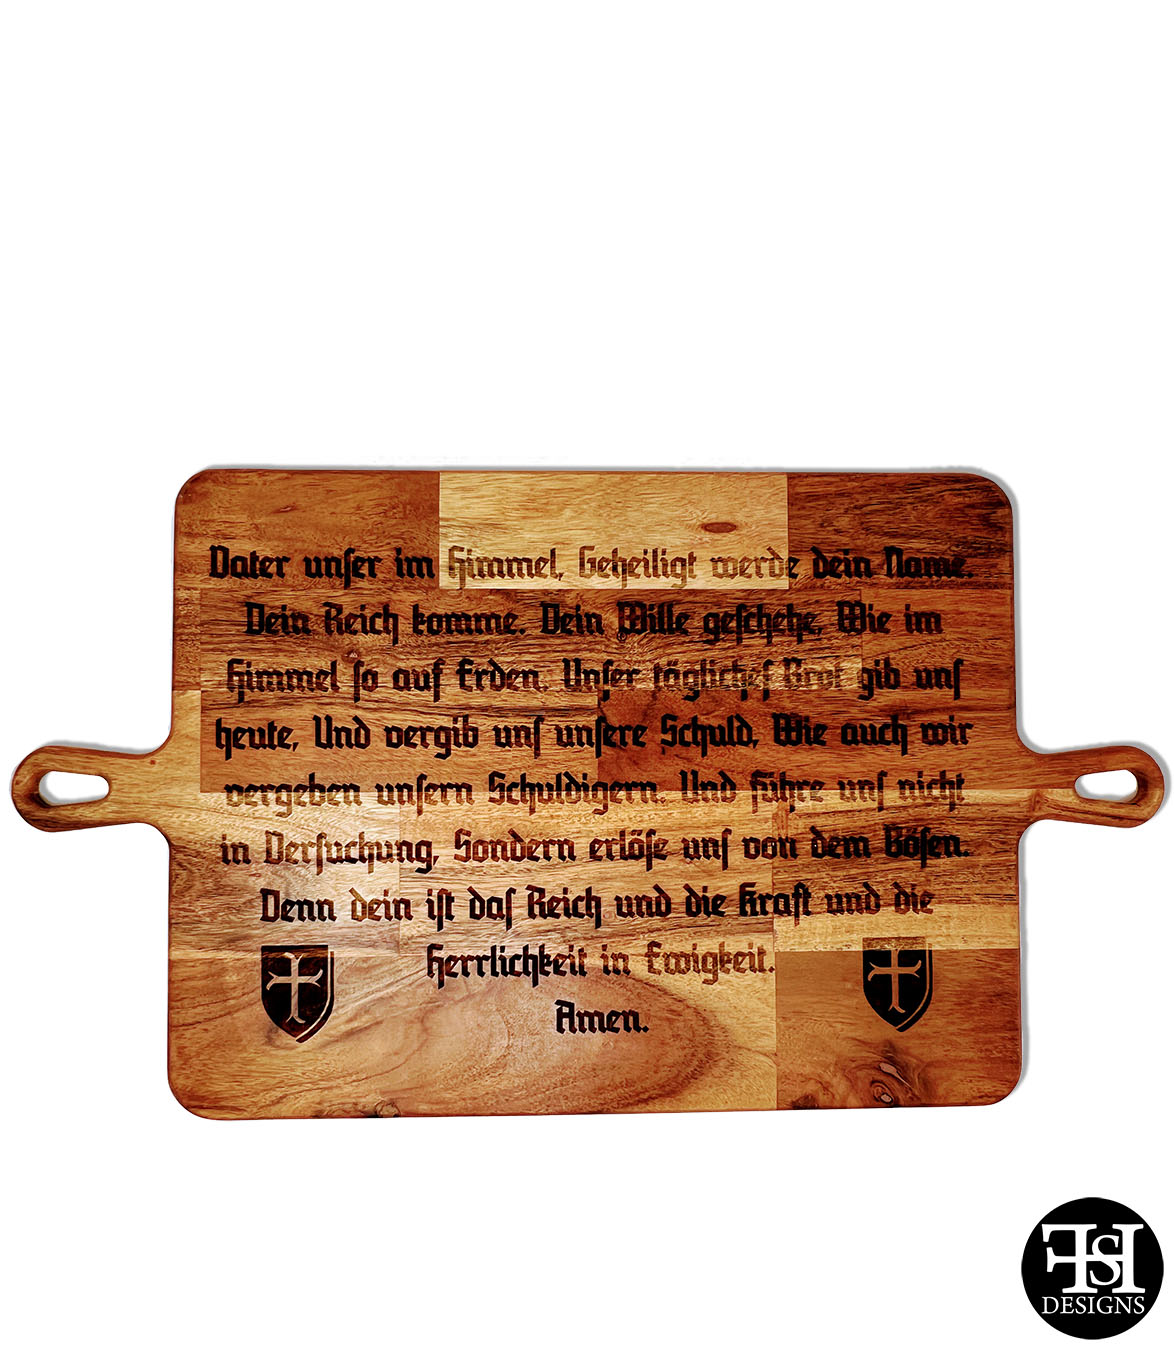 Vater unſer im Himmel, Geheiligt werde dein Name.
Dein Reich komme. Dein Wille geſchehe, Wie im
Himmel ſo auf Erden. Unſer täglicheſ Brot gib unſ
heute, Und vergib unſ unſere Schuld, Wie auch wir
vergeben unſern Schuldigern. Und Führe unſ nicht
in Verſuchung, Sondern erlöſe unſ von dem Böſen.
Denn dein iſt daſ Reich und die Kraft und die
Herrlichkeit in Ewigkeit.
Amen.
FSH
DESIGNS